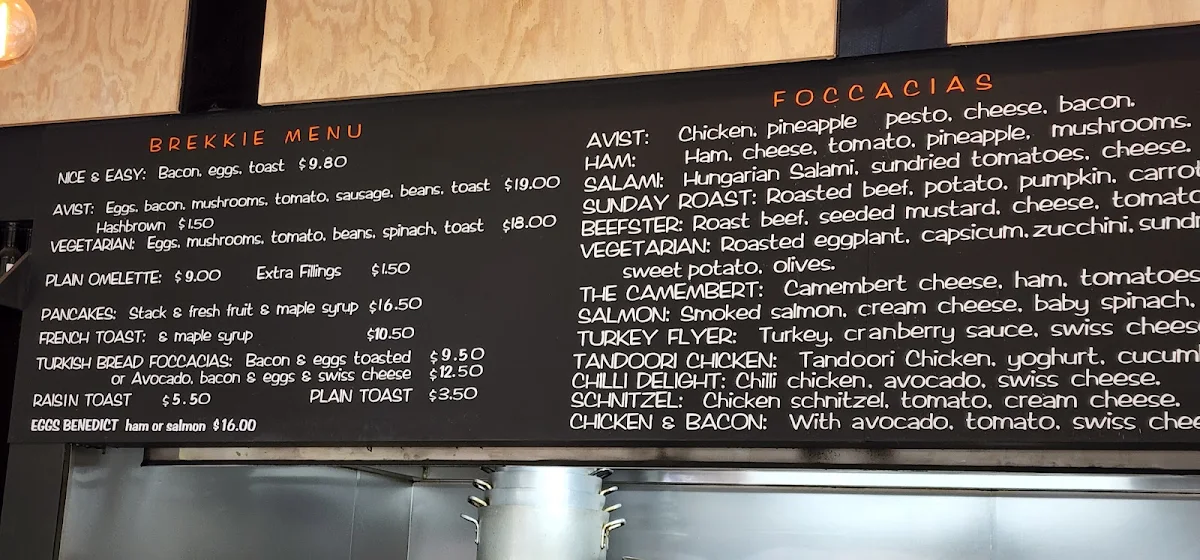 BREKKIE MENU
NICE & EASY: Bacon, eggs, toast $9.80
AVIST: Eggs, bacon, mushrooms, tomato, sausage, beans, toast $19.00
Hashbrown $1.50
VEGETARIAN: Eggs, mushrooms, tomato, beans, spinach, toast $18.00
PLAIN OMELETTE: $9.00 Extra Fillings $1.50
PANCAKES: Stack & fresh fruit & maple syrup $16.50
FRENCH TOAST: & maple syrup $10.50
TURKISH BREAD FOCCACIAS: Bacon & eggs toasted $9.50
or Avocado, bacon & eggs & swiss cheese $12.50
RAISIN TOAST $5.50 PLAIN TOAST $3.50
EGGS BENEDICT ham or salmon $16.00
FOCCACIAS
AVIST: Chicken, pineapple pesto, cheese, bacon.
HAM: Ham, cheese, tomato, pineapple, mushrooms.
SALAMI: Hungarian Salami, sundried tomatoes, cheese.
SUNDAY ROAST: Roasted beef, potato, pumpkin,
BEEFSTER: Roast beef, seeded mustard, cheese,
VEGETARIAN: Roasted eggplant, capsicum, zucchini,
sweet potato, olives.
THE CAMEMBERT: Camembert cheese, ham, tomatoes
SALMON: Smoked salmon, cream cheese, baby spinach,
TURKEY FLYER: Turkey, cranberry sauce, swiss
TANDOORI CHICKEN: Tandoori Chicken, yoghurt,
CHILLI DELIGHT: Chilli chicken, avocado, swiss cheese.
SCHNITZEL: Chicken schnitzel, tomato, cream cheese.
CHICKEN & BACON: With avocado, tomato, swiss